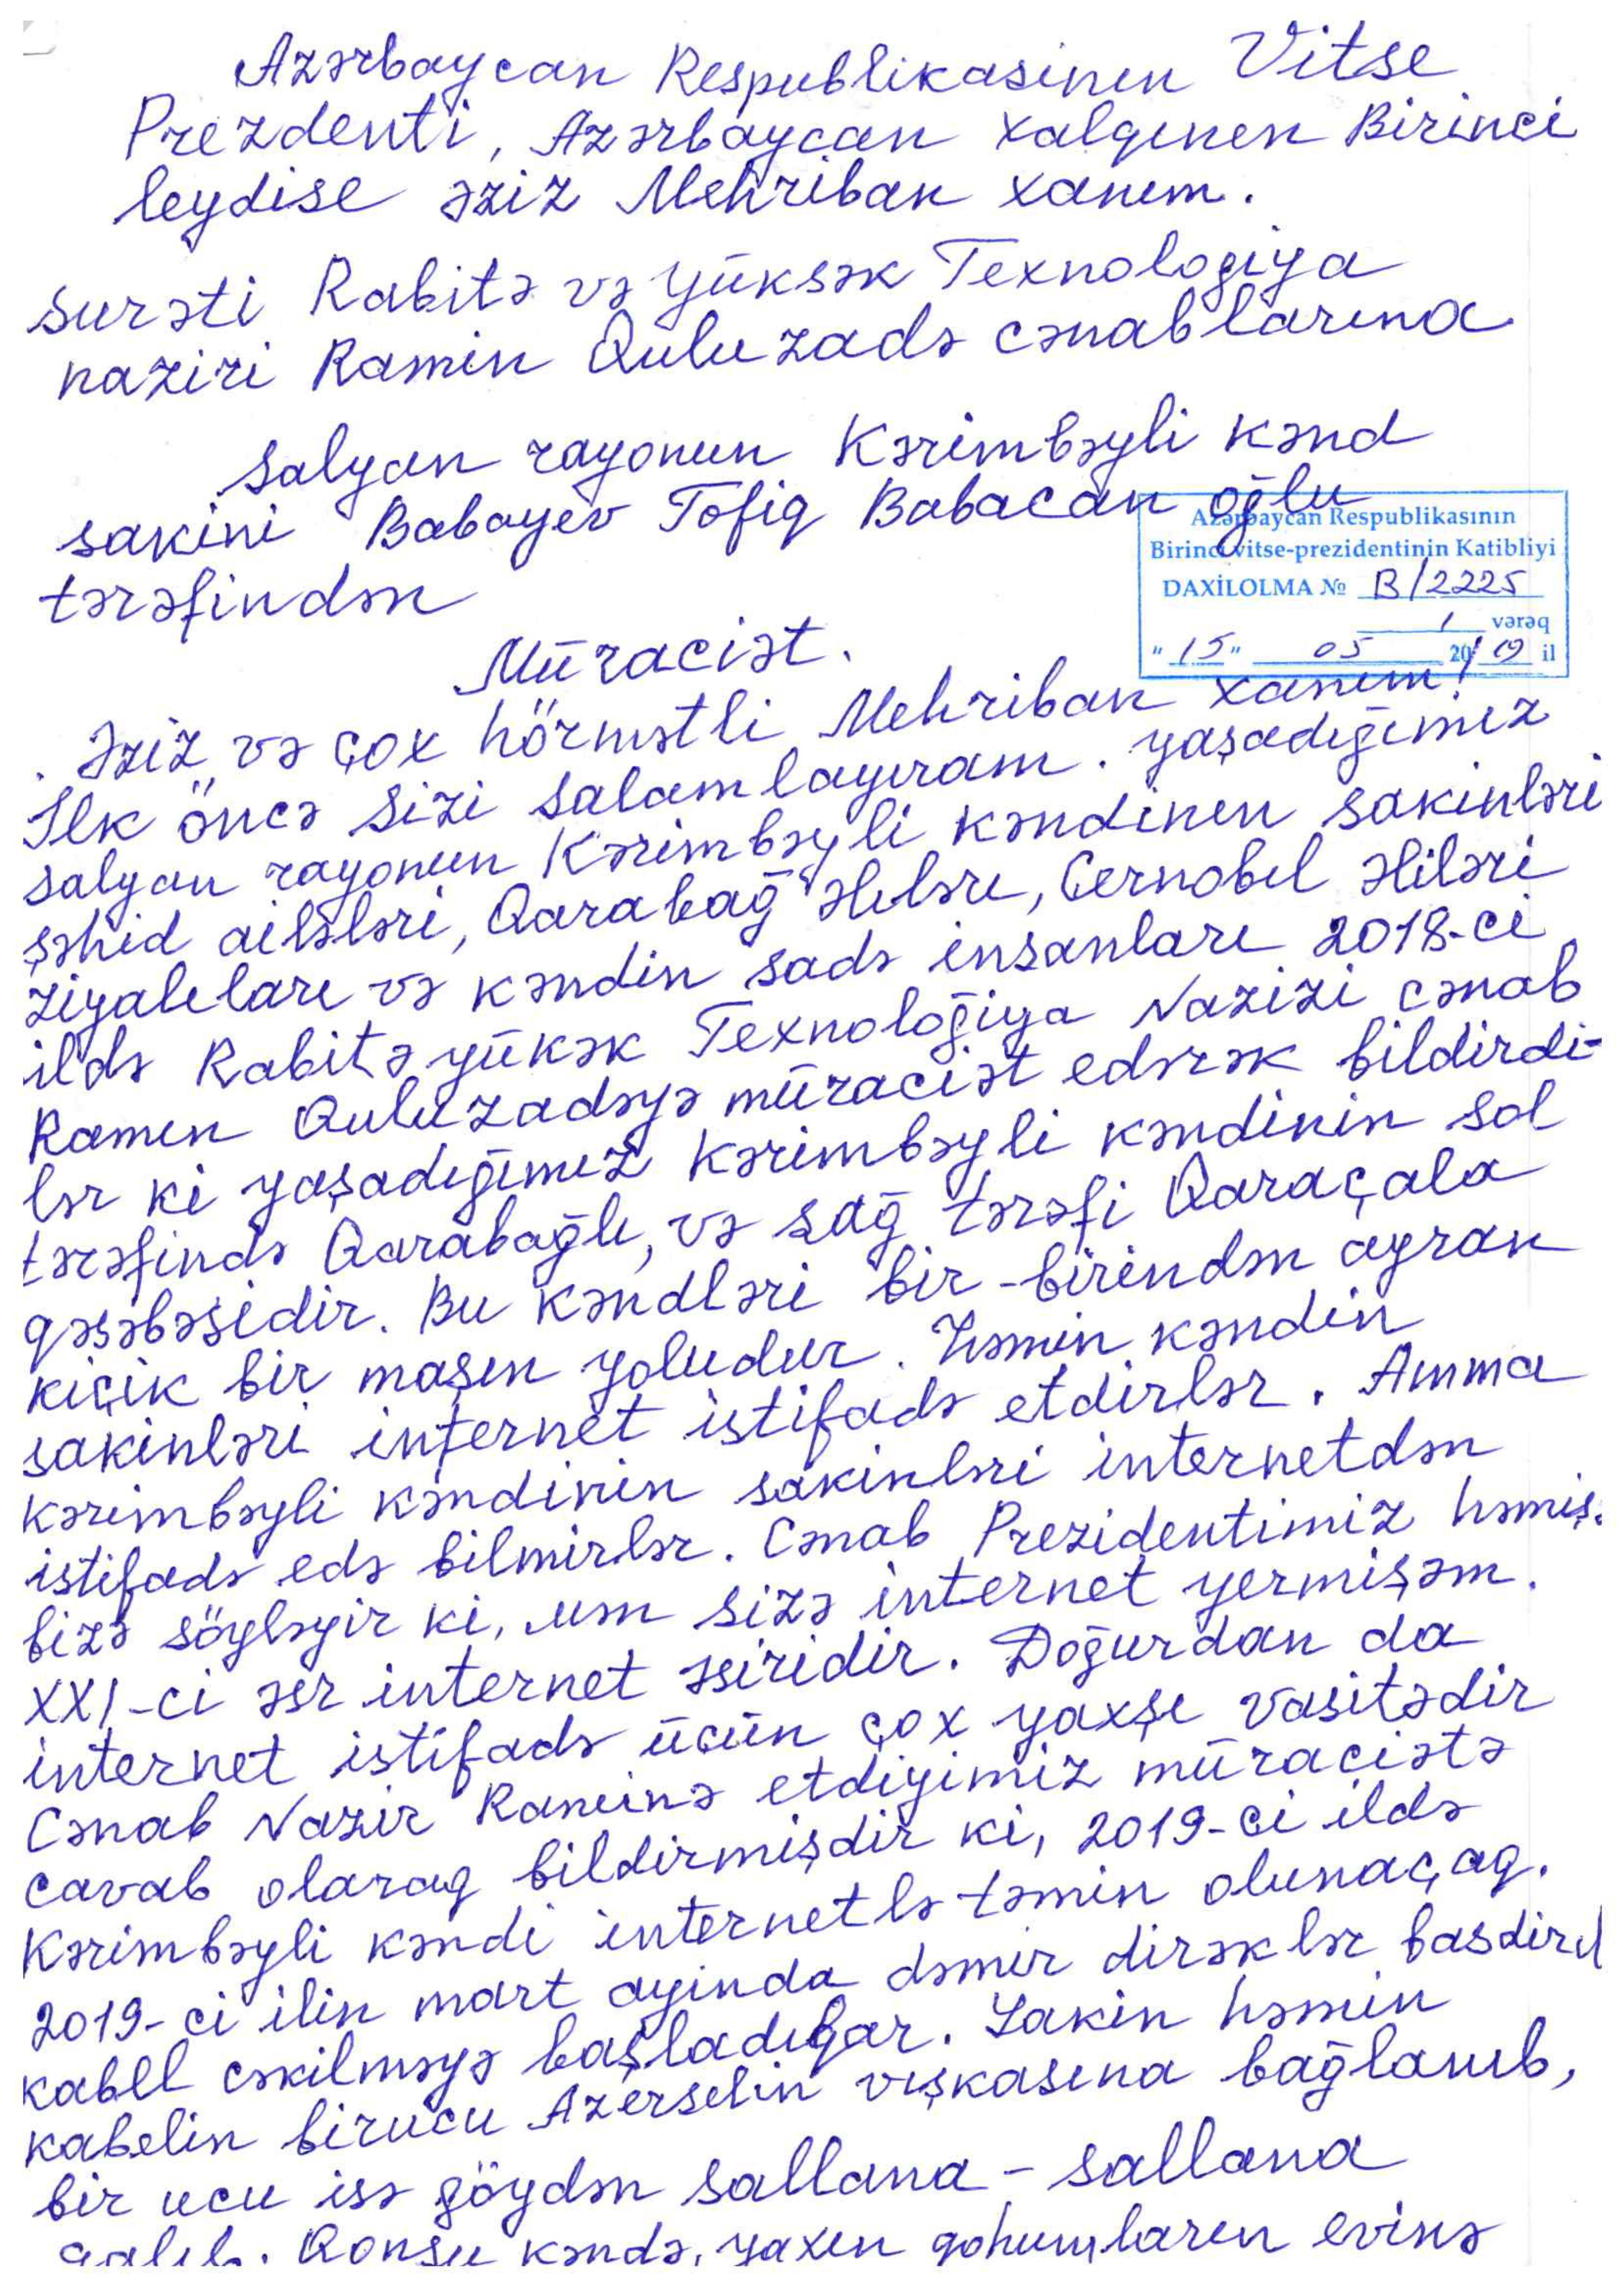 Azərbaycan Respublikasinın Vitse
Prezdenti, Azərbaycan xalqının Birinci
leydisı əziz Mehriban xanım.
surəti Rabitə və yüksək Texnologiya
naziri Ramin Quluzadə cənablarına
salyan rayonun Kərimbəyli kənd
sakini Babayev Tofiq Babacan oğlu
tərəfindən
Azərbaycan Respublikasının
Birinci vitse-prezidentinin Katibliyi
DAXİLOLMA № B/2225
1 vərəq
"15" 05 2019 il
Müraciət.
Əziz və çox hörmətli Mehriban xanım!
Ilk öncə sizi salamlayıram. yaşadığımız
salyan rayonun Kərimbəyli kəndinın sakinləri
şəhid ailələri, Qarabağ əlıləri, Çernobıl əliləri
ziyalıları və kəndin sadə insanları 2018-ci
ildə Rabitə yükək Texnoloğiya Naziri cənab
Ramın Quluzadəyə müraciət edərək bildirdi-
lər ki yaşadığımız kərimbəyli kəndinin sol
tərəfində Qarabağlı, və sağ tərəfi Qaraçala
qəsəbəsidir. Bu kəndləri bir-birindən ayran
kiçik bir maşın yoludur. Həmin kəndin
sakinləri internet istifadə etdirlər. Amma
kərimbəyli kəndinin sakinləri internetdən
istifadə edə bilmirlər. Cənab Prezidentimiz həmiş
bizə söyləyir ki, mən sizə internet yermişəm.
XXI-ci əsr internet əsiridir. Doğurdan da
internet istifadə üçün çox yaxşı vasitədir
Cənab Nazir Raminə etdiyimiz müraciətə
cavab olaraq bildirmişdir ki, 2019-ci ildə
Kərimbəyli kəndi internetlə təmin olunaçaq.
2019-ci ilin mart ayinda dəmir dirəklər basdirıl
kabel cəkilməyə başladılar. Lakin həmin
kabelin birucu Azerselin vışkasına bağlanıb,
bir ucu isə göydən sallana-sallana
qalıb. Qonşu kəndə, yaxın qohumların evinə